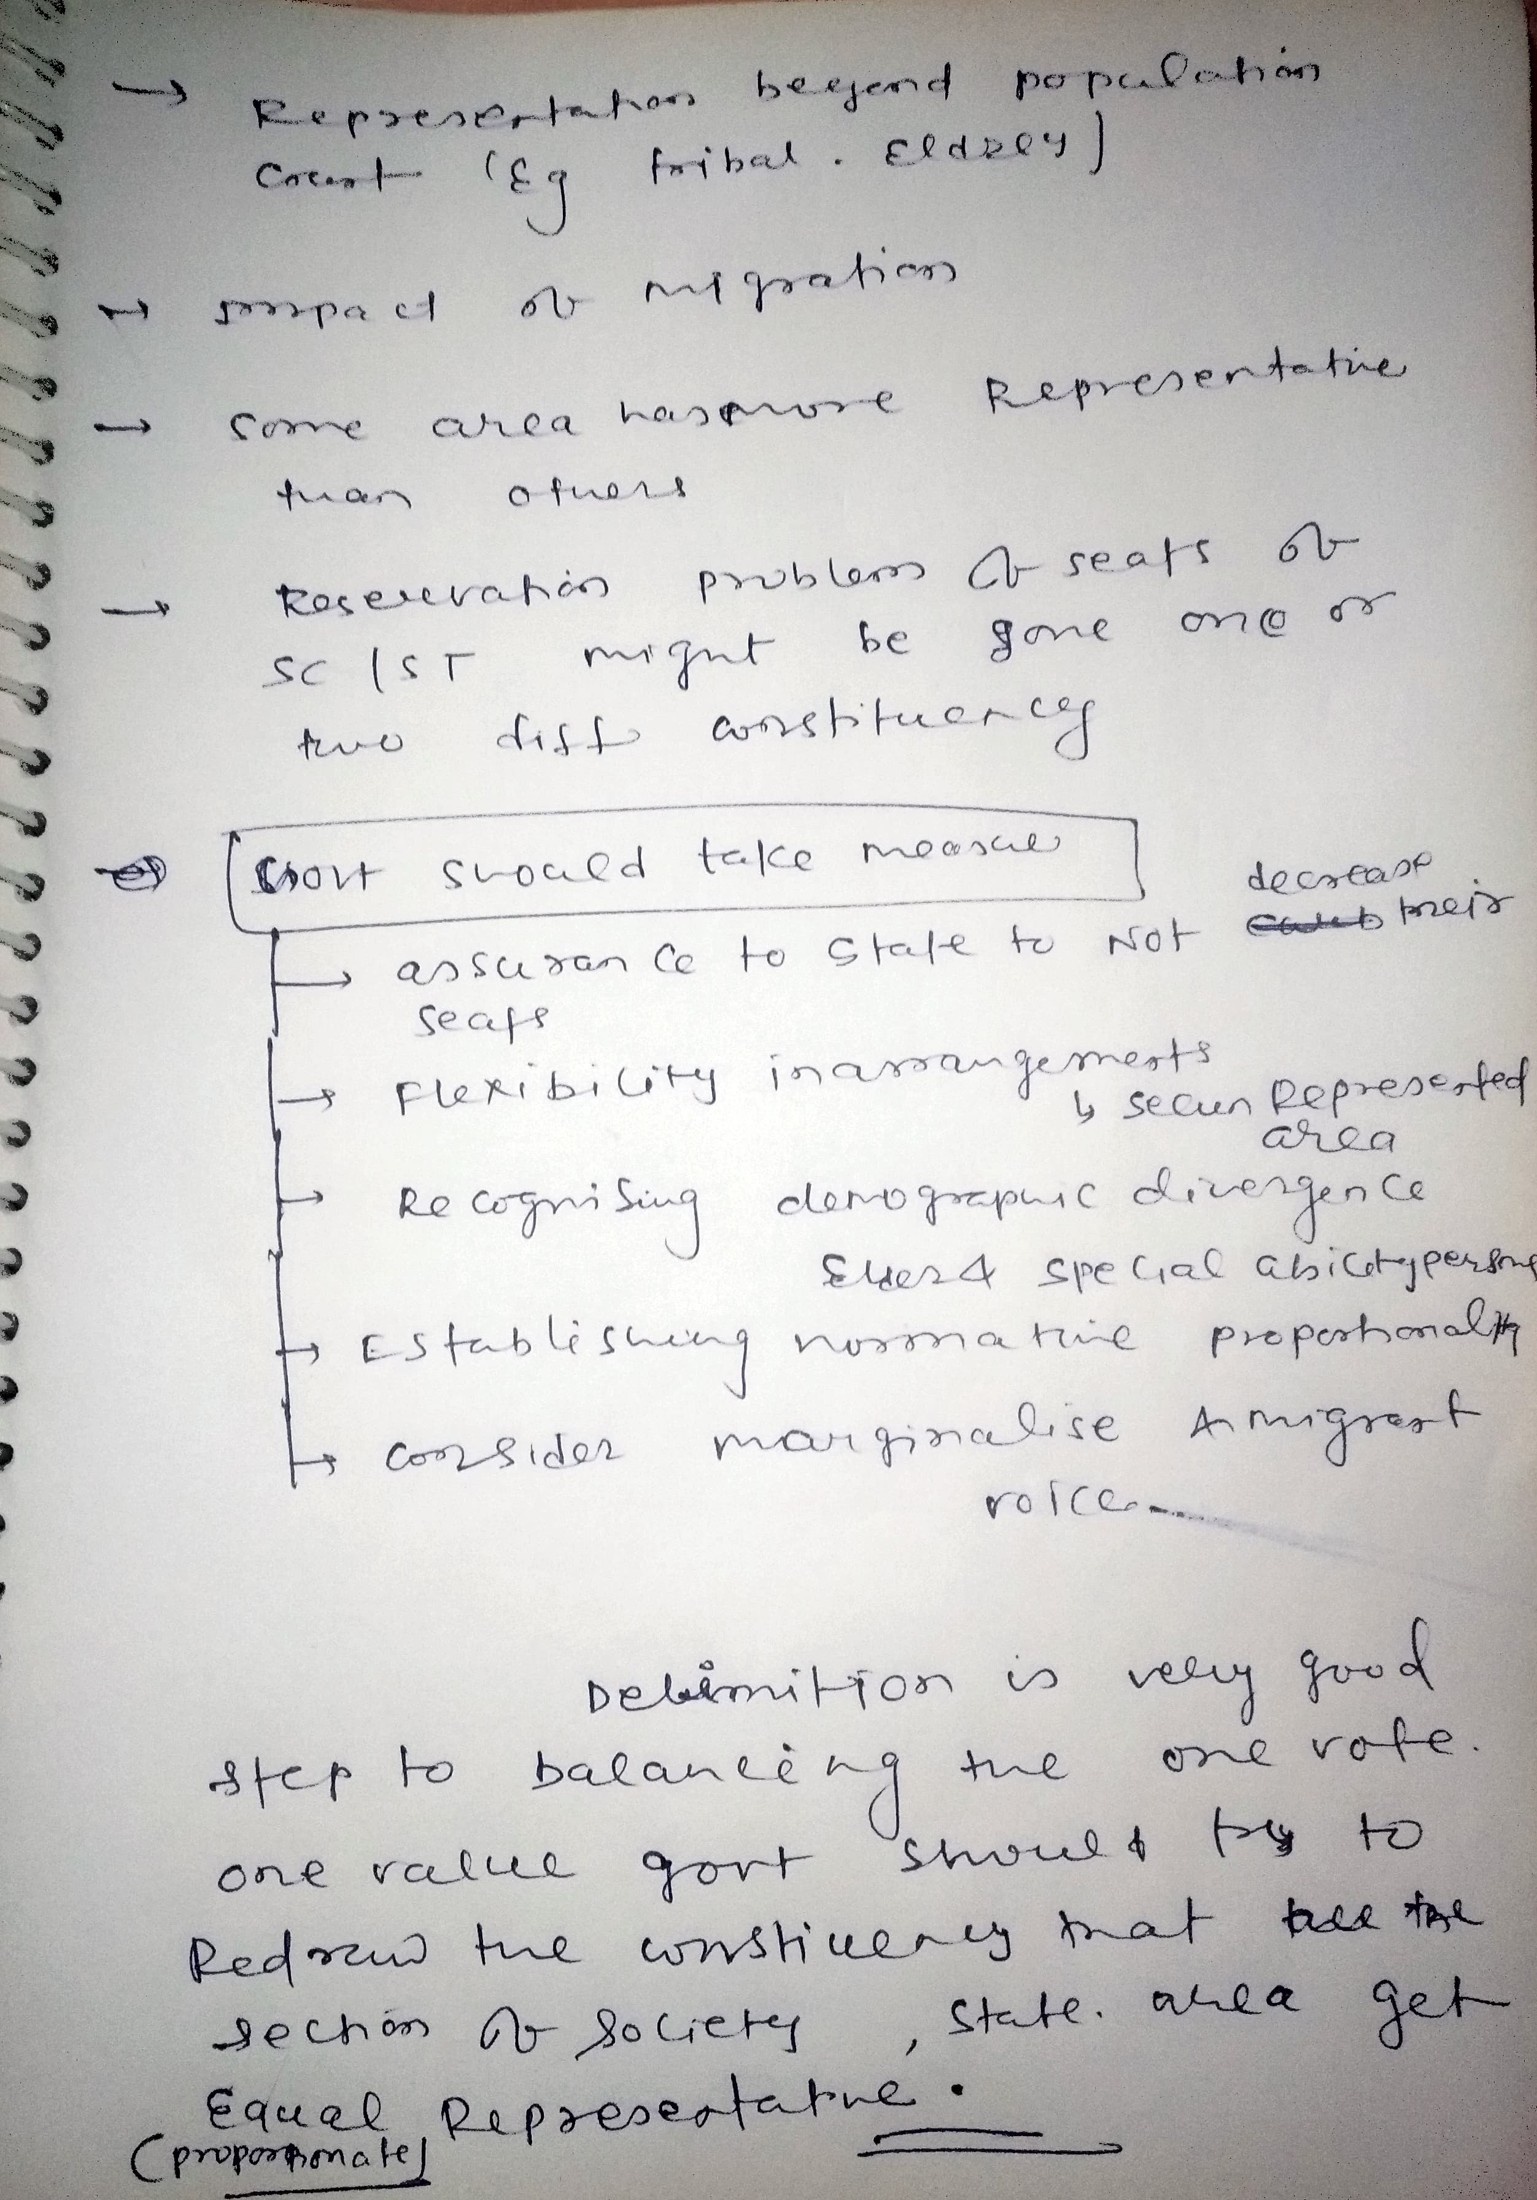 → Representation beyond population
count (Eg tribal. Eldrey)
→ Impact of migration
→ Some area has more Representative
than others
→ Reservation problem of seats of
SC/ST might be gone one or
two diff constituency
Govt should take measure
decrease
→ assurance to State to Not their
seats
→ Flexibility in arrangements
↳ Represented
area
→ Recognising demographic divergence
Elder & special ability persons
→ Establishing normative proportionality
→ consider marginalise & migrant
voice
Delimition is very good
step to balancing the one vote.
one value govt should try to
Redraw the constituency that all the
section of society, state. area get
Equal Representative.
(proportionate)